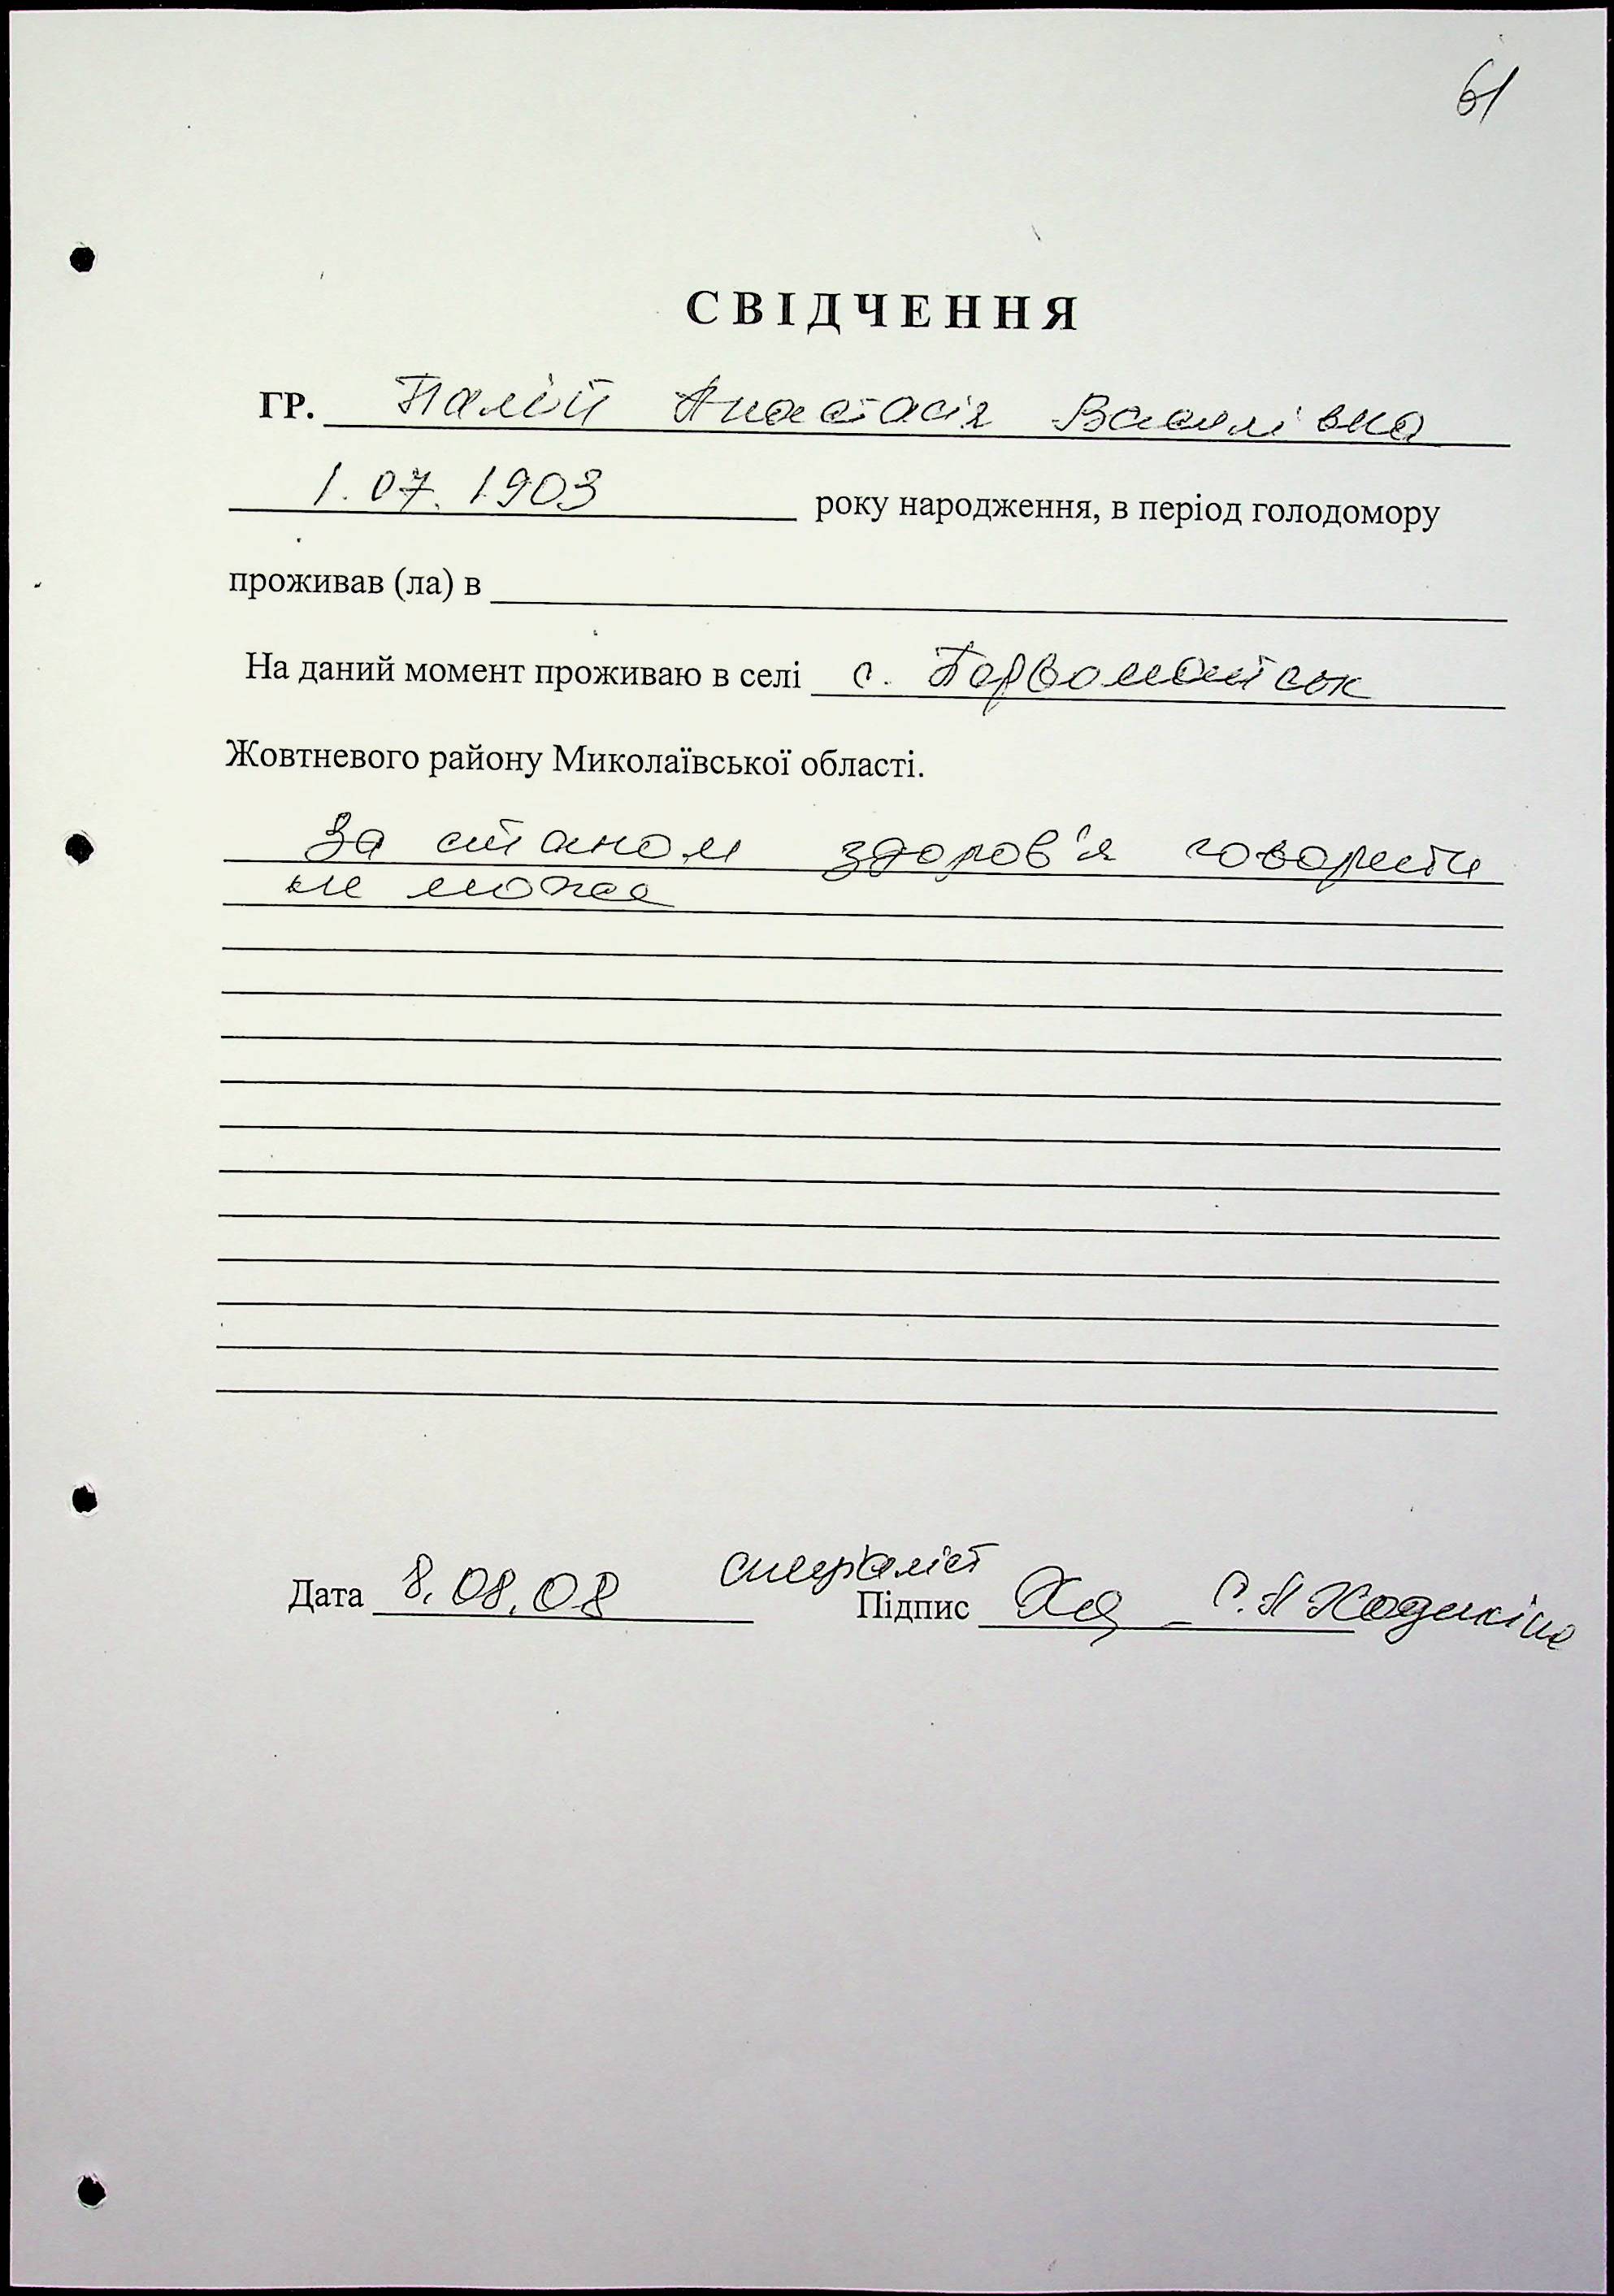 61
СВІДЧЕННЯ
ГР. Палій Анастасія Василівна
1.07.1903 року народження, в період голодомору
проживав (ла) в
На даний момент проживаю в селі с. Первомайськ
Жовтневого району Миколаївської області.
За станом здоров'я говорити
не може
спеціаліст
Дата 8.08.08 Підпис С.А